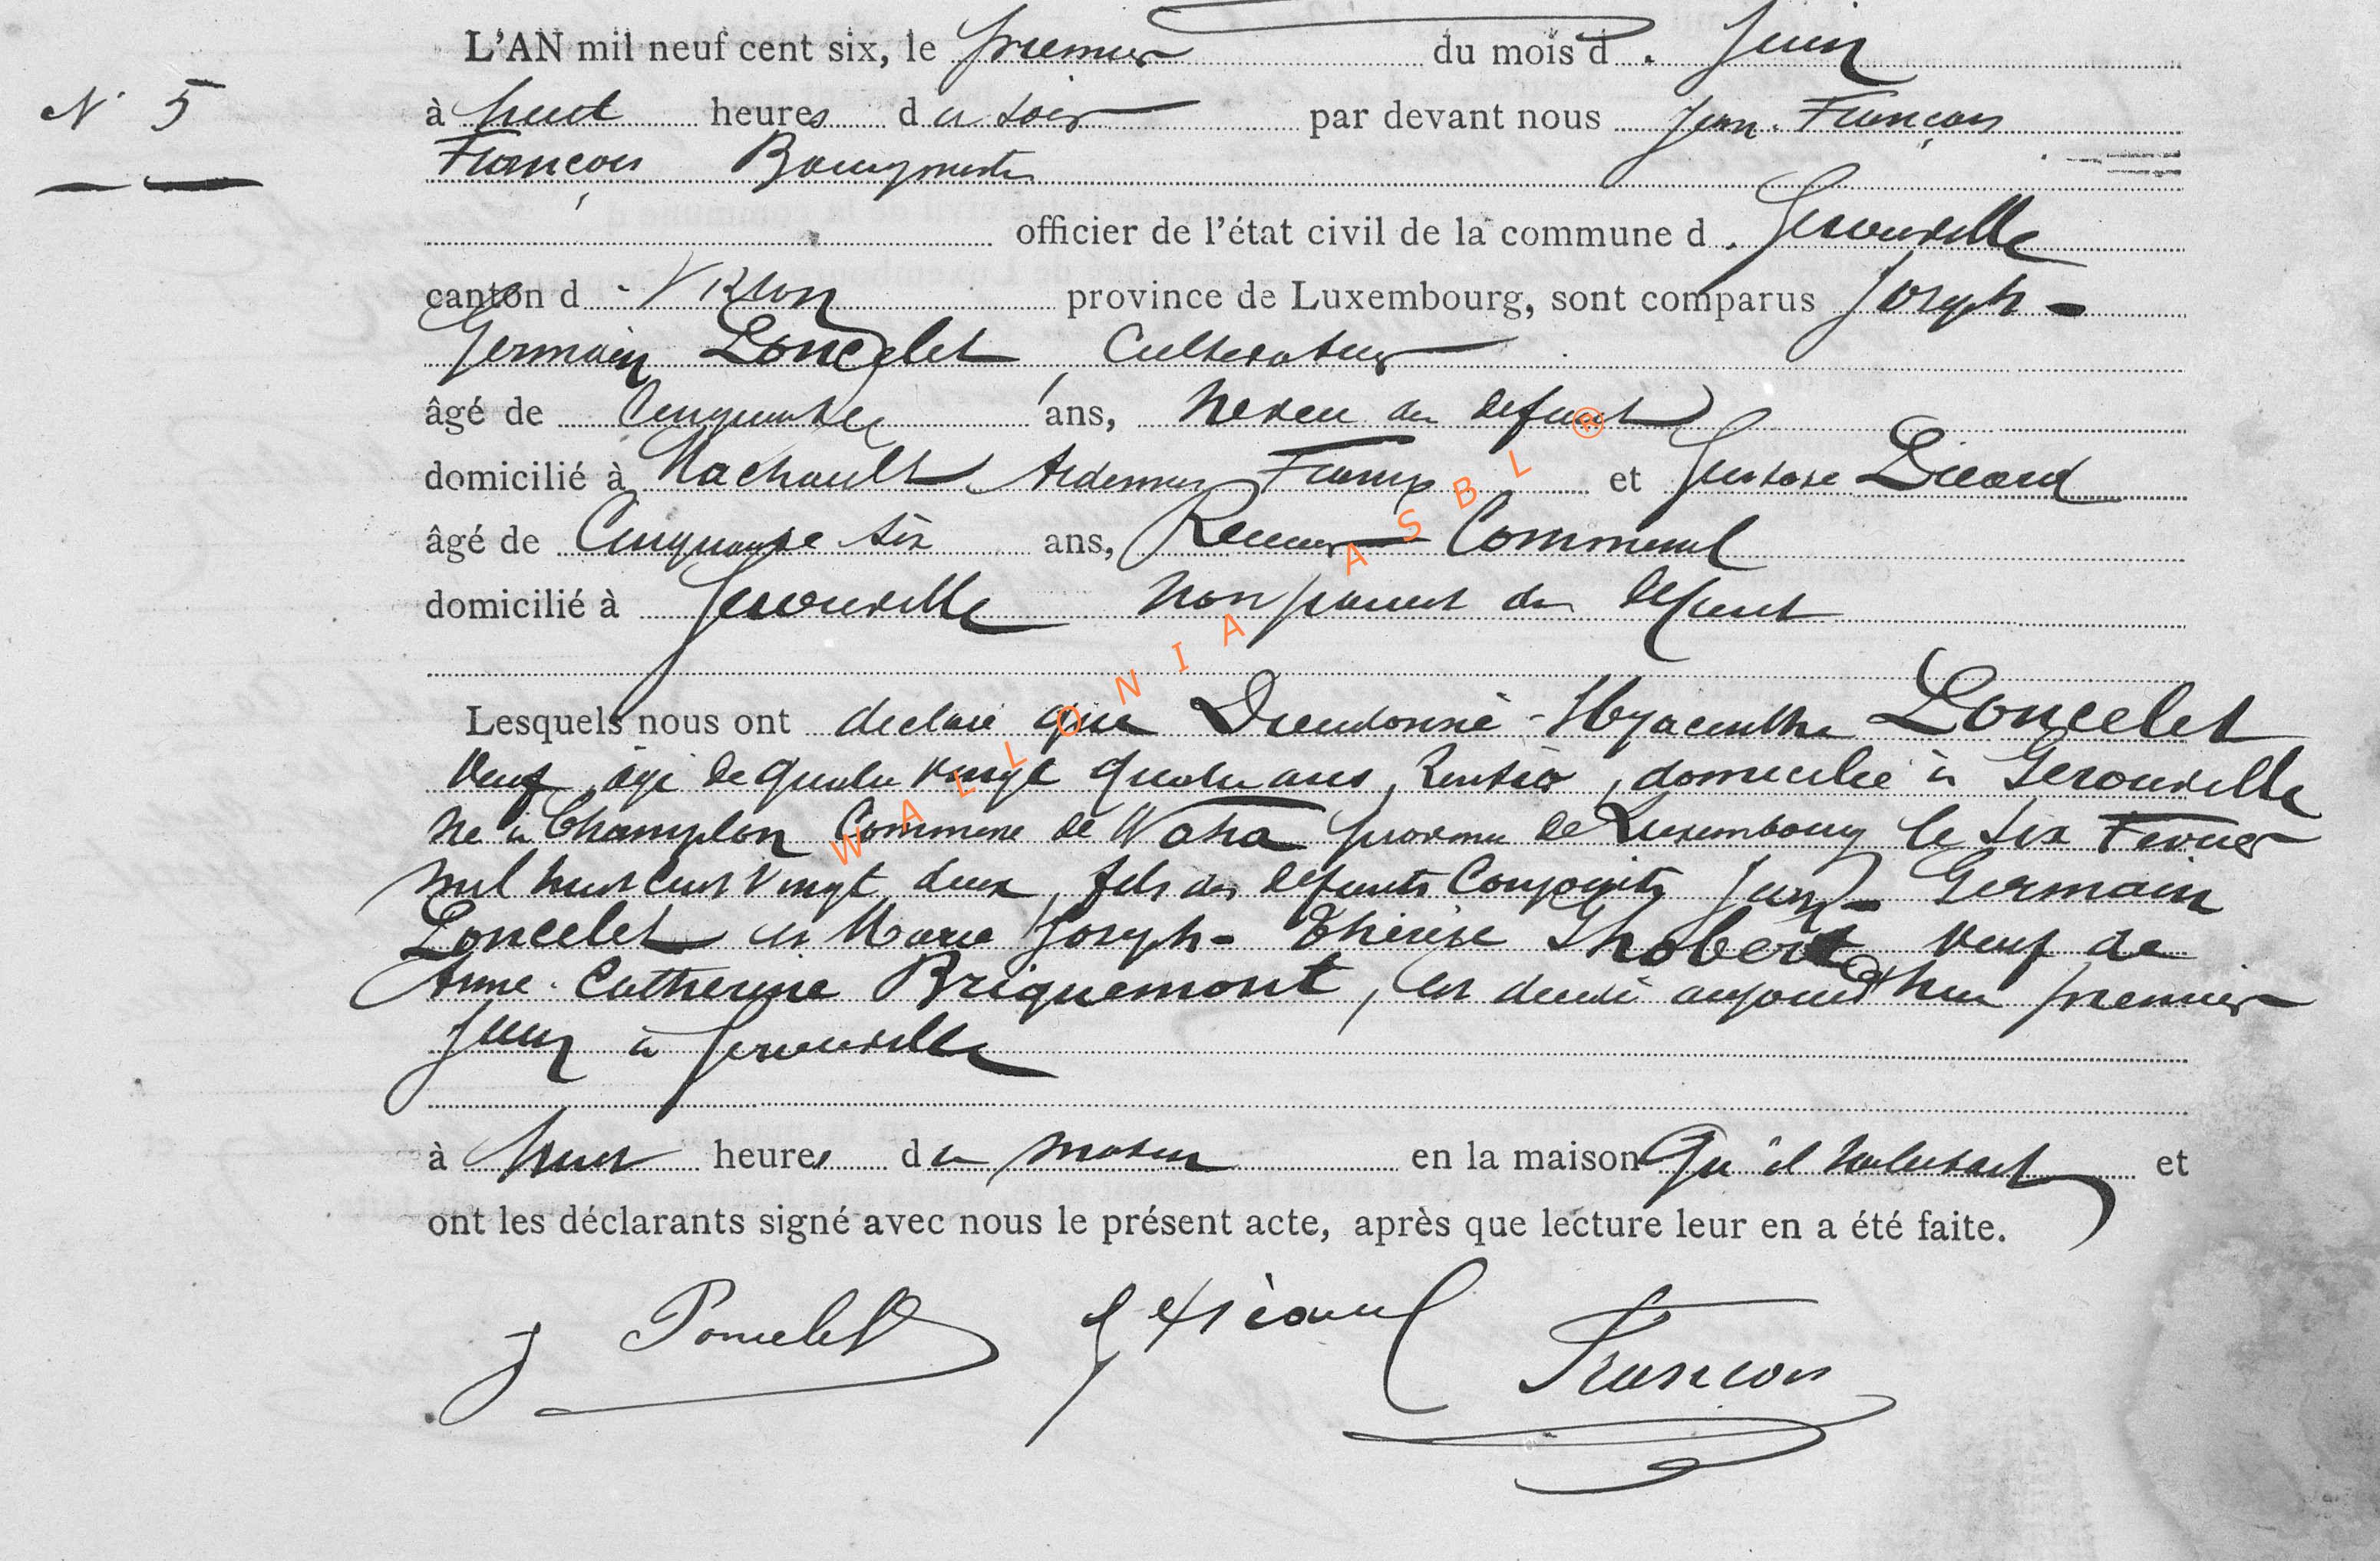 L'AN mil neuf cent six, le premier du mois d. Juin
N° 5
à huit heures du soir par devant nous Jean-François
François Bourgmestre
officier de l'état civil de la commune d. Gerouville
canton d. Virton province de Luxembourg, sont comparus Joseph-
Germain Poncelet, Cultivateur
âgé de Cinquante ans, neveu du defunt
domicilié à Machault Ardennes France et Gustave
âgé de Cinquante six ans, Receveur Communal
domicilié à Gerouville non parent du defunt
Lesquels nous ont declaré que Dieudonné-Hyacinthe Poncelet
veuf, âgé de quatre vingt quatre ans, Rentier, domicilié à Gerouville
né à Champlon Commune de Waha province de Luxembourg le six Fevrier
mil huit cent vingt deux, fils des defunts Conjoints Jean-Germain
Poncelet et Marie Joseph-Thérèse Thobert veuf de
Anne-Catherine Briquemont, est decedé aujourd'hui premier
Juin à Gerouville
à huit heures du matin en la maison qu'il habitait et
ont les déclarants signé avec nous le présent acte, après que lecture leur en a été faite.
J Poncelet
François
WALLONIA ASBL ®